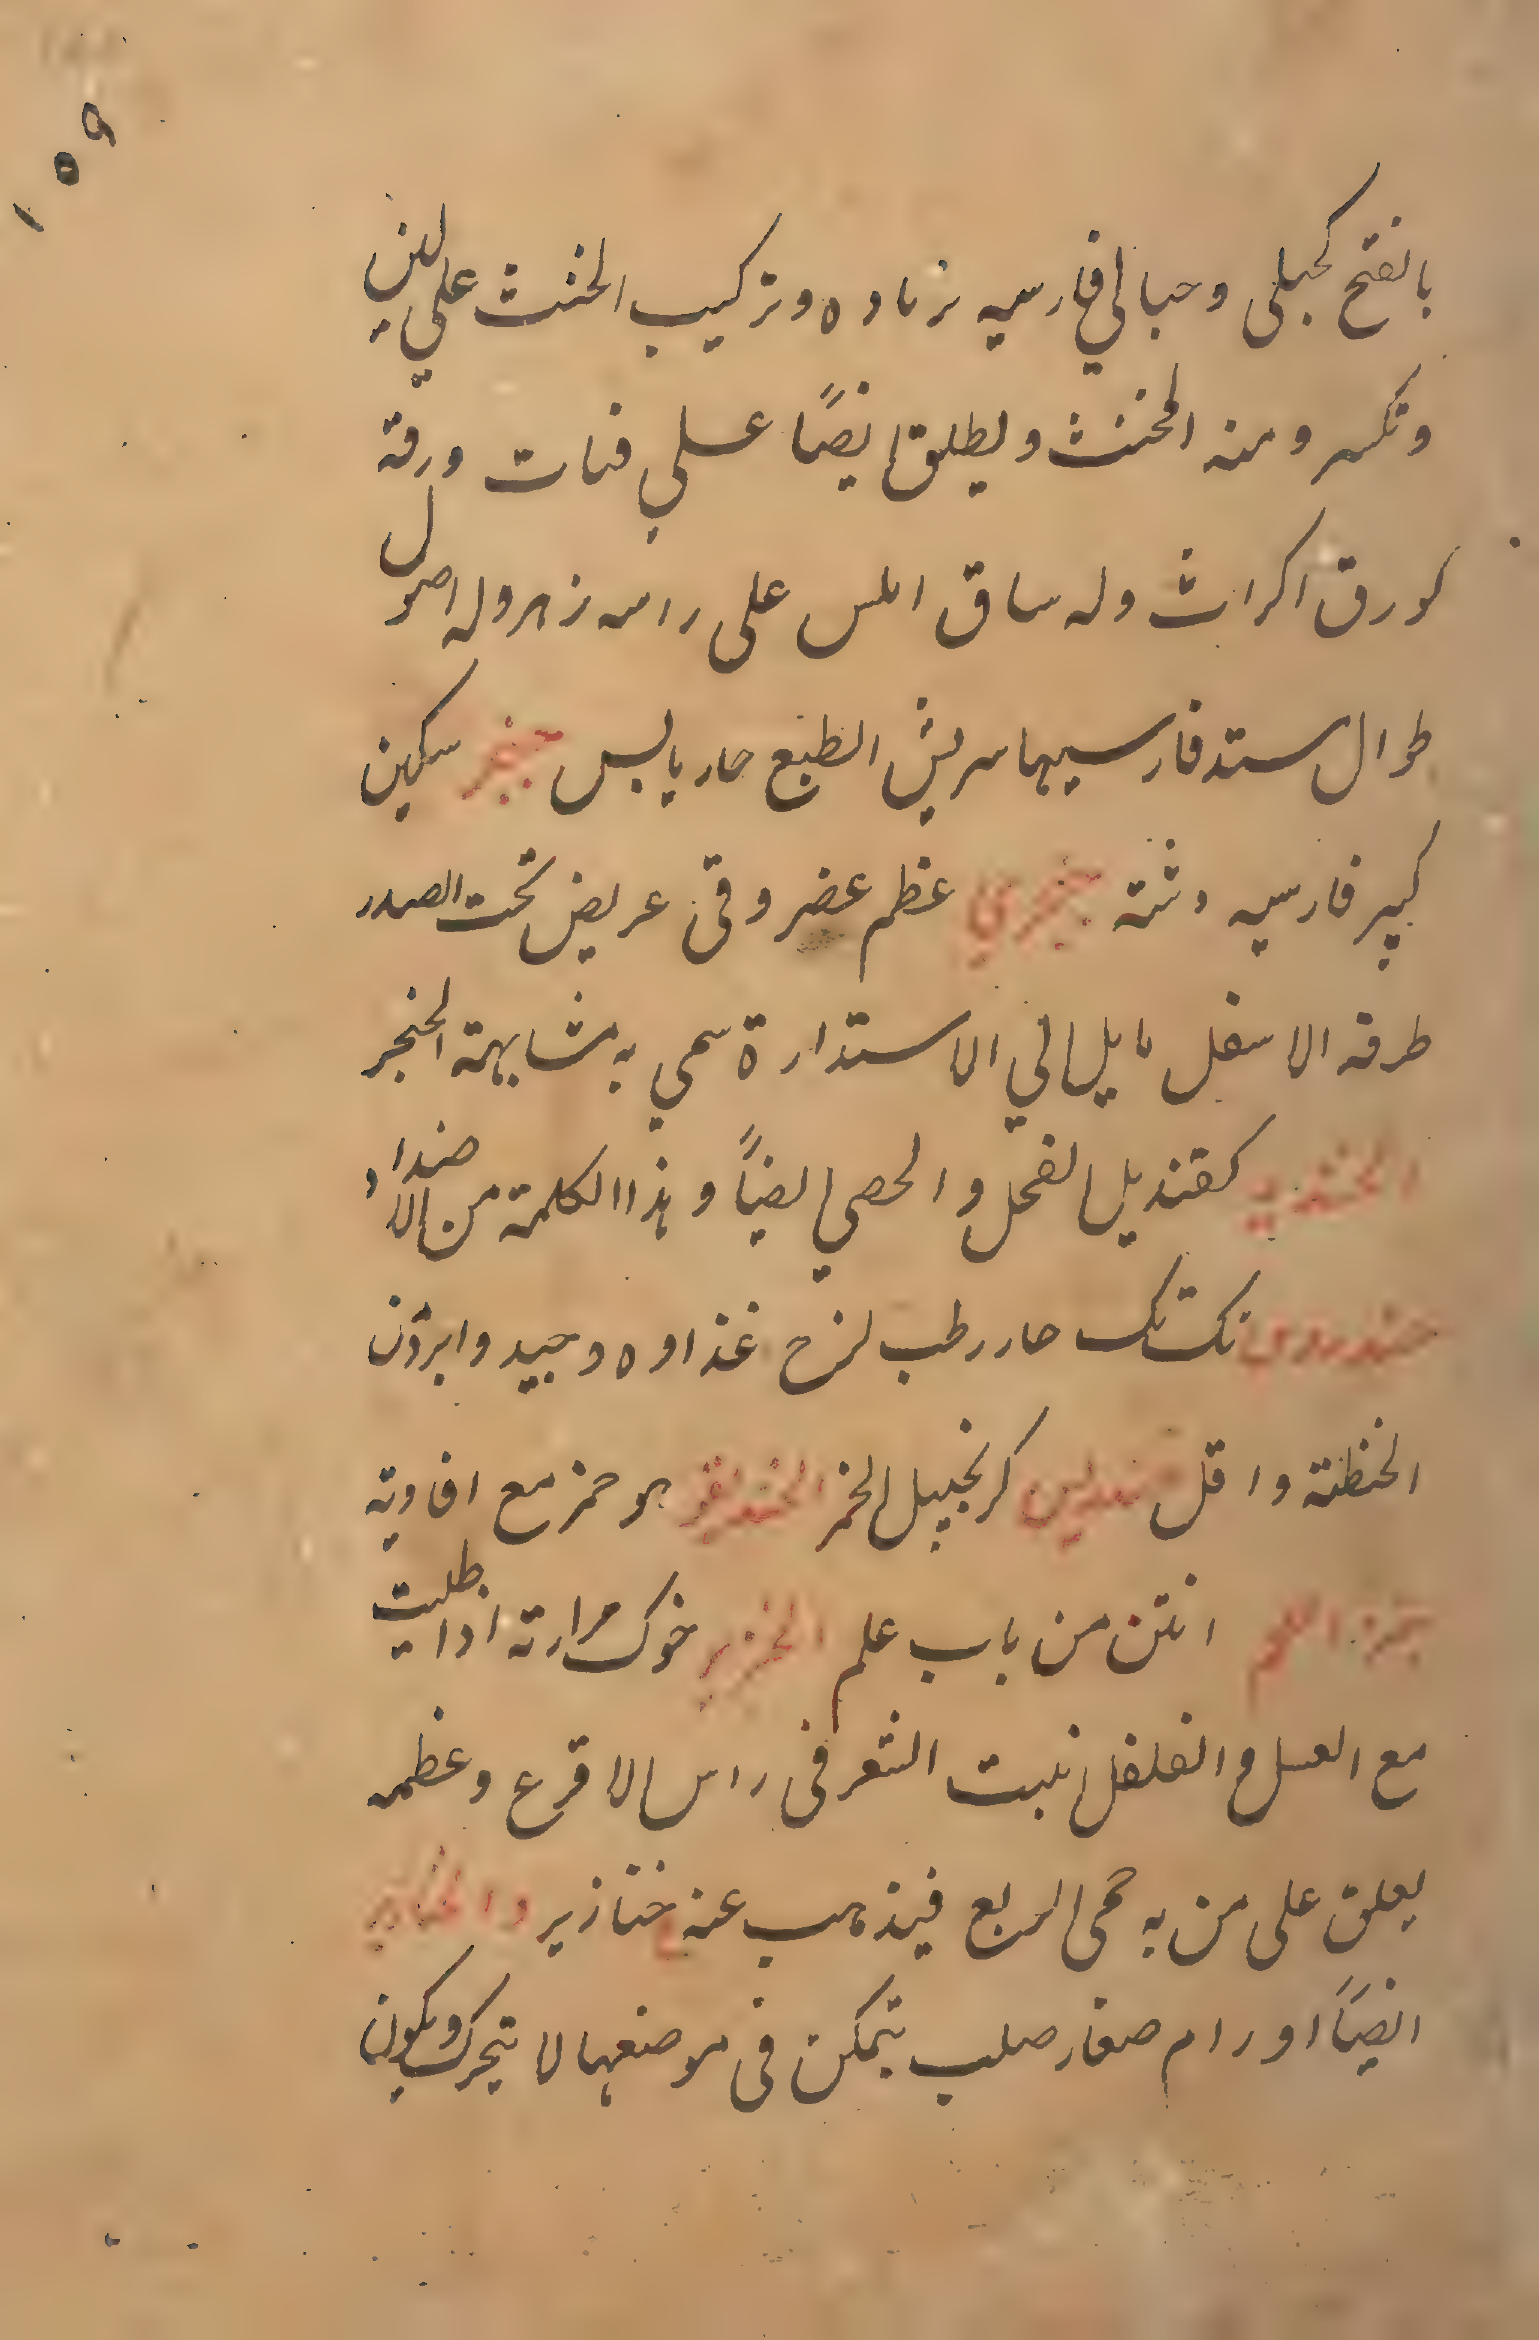 ١٥٩
بالفتح كحبلى وحبالي فارسيه نر ماده وتركيب الخنث على لين
وتكسر ومنه المخنث ويطلق ايضًا على نبات ورقه
كورق اكراث وله ساق املس على راسه زهر وله اصول
طوال ستد فارسيها سريش الطبع حار يابس خنجر سكين
كبير فارسيه دشنه خنجري عظم غضروفى عريض تحت الصدر
طرفه الاسفل مايل الي الاستدارة سمي به مشابهة الخنجر
الخنذيد كقنديل الفحل والخصي ايضًا وهذا الكلمة من الاضداد
خندروس حار رطب لزج غذاوه وجيد وابرد من
الحنطة واقل خندريس كزنجبيل الخمر الخنديقو هو خمر مع افاويه
خنز اللحم انتن من باب علم الخنزير خوك مرارته اذا طليت
مع العسل والفلفل انبت الشعر فى راس الاقرع وعظمه
يعلق على من به حمى الربع فيذهب عنه خنازير والخنازير
ايضًا اورام صغار صلب يتمكن فى موضعها لا يتحرك ويكون